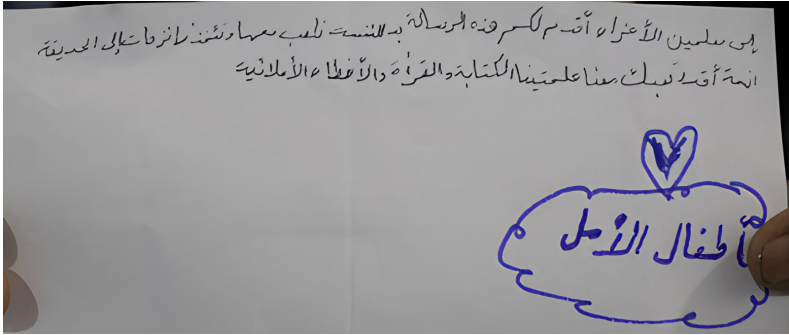 إلى معلمين الأعزاء أقدم لكم هذه الرسالة نلعب معها رحلات إلى الحديقة
أقدر تعبك معنا علمتينا الكتابة والقرأة والأخطاء الأملائية
أطفال الأمل